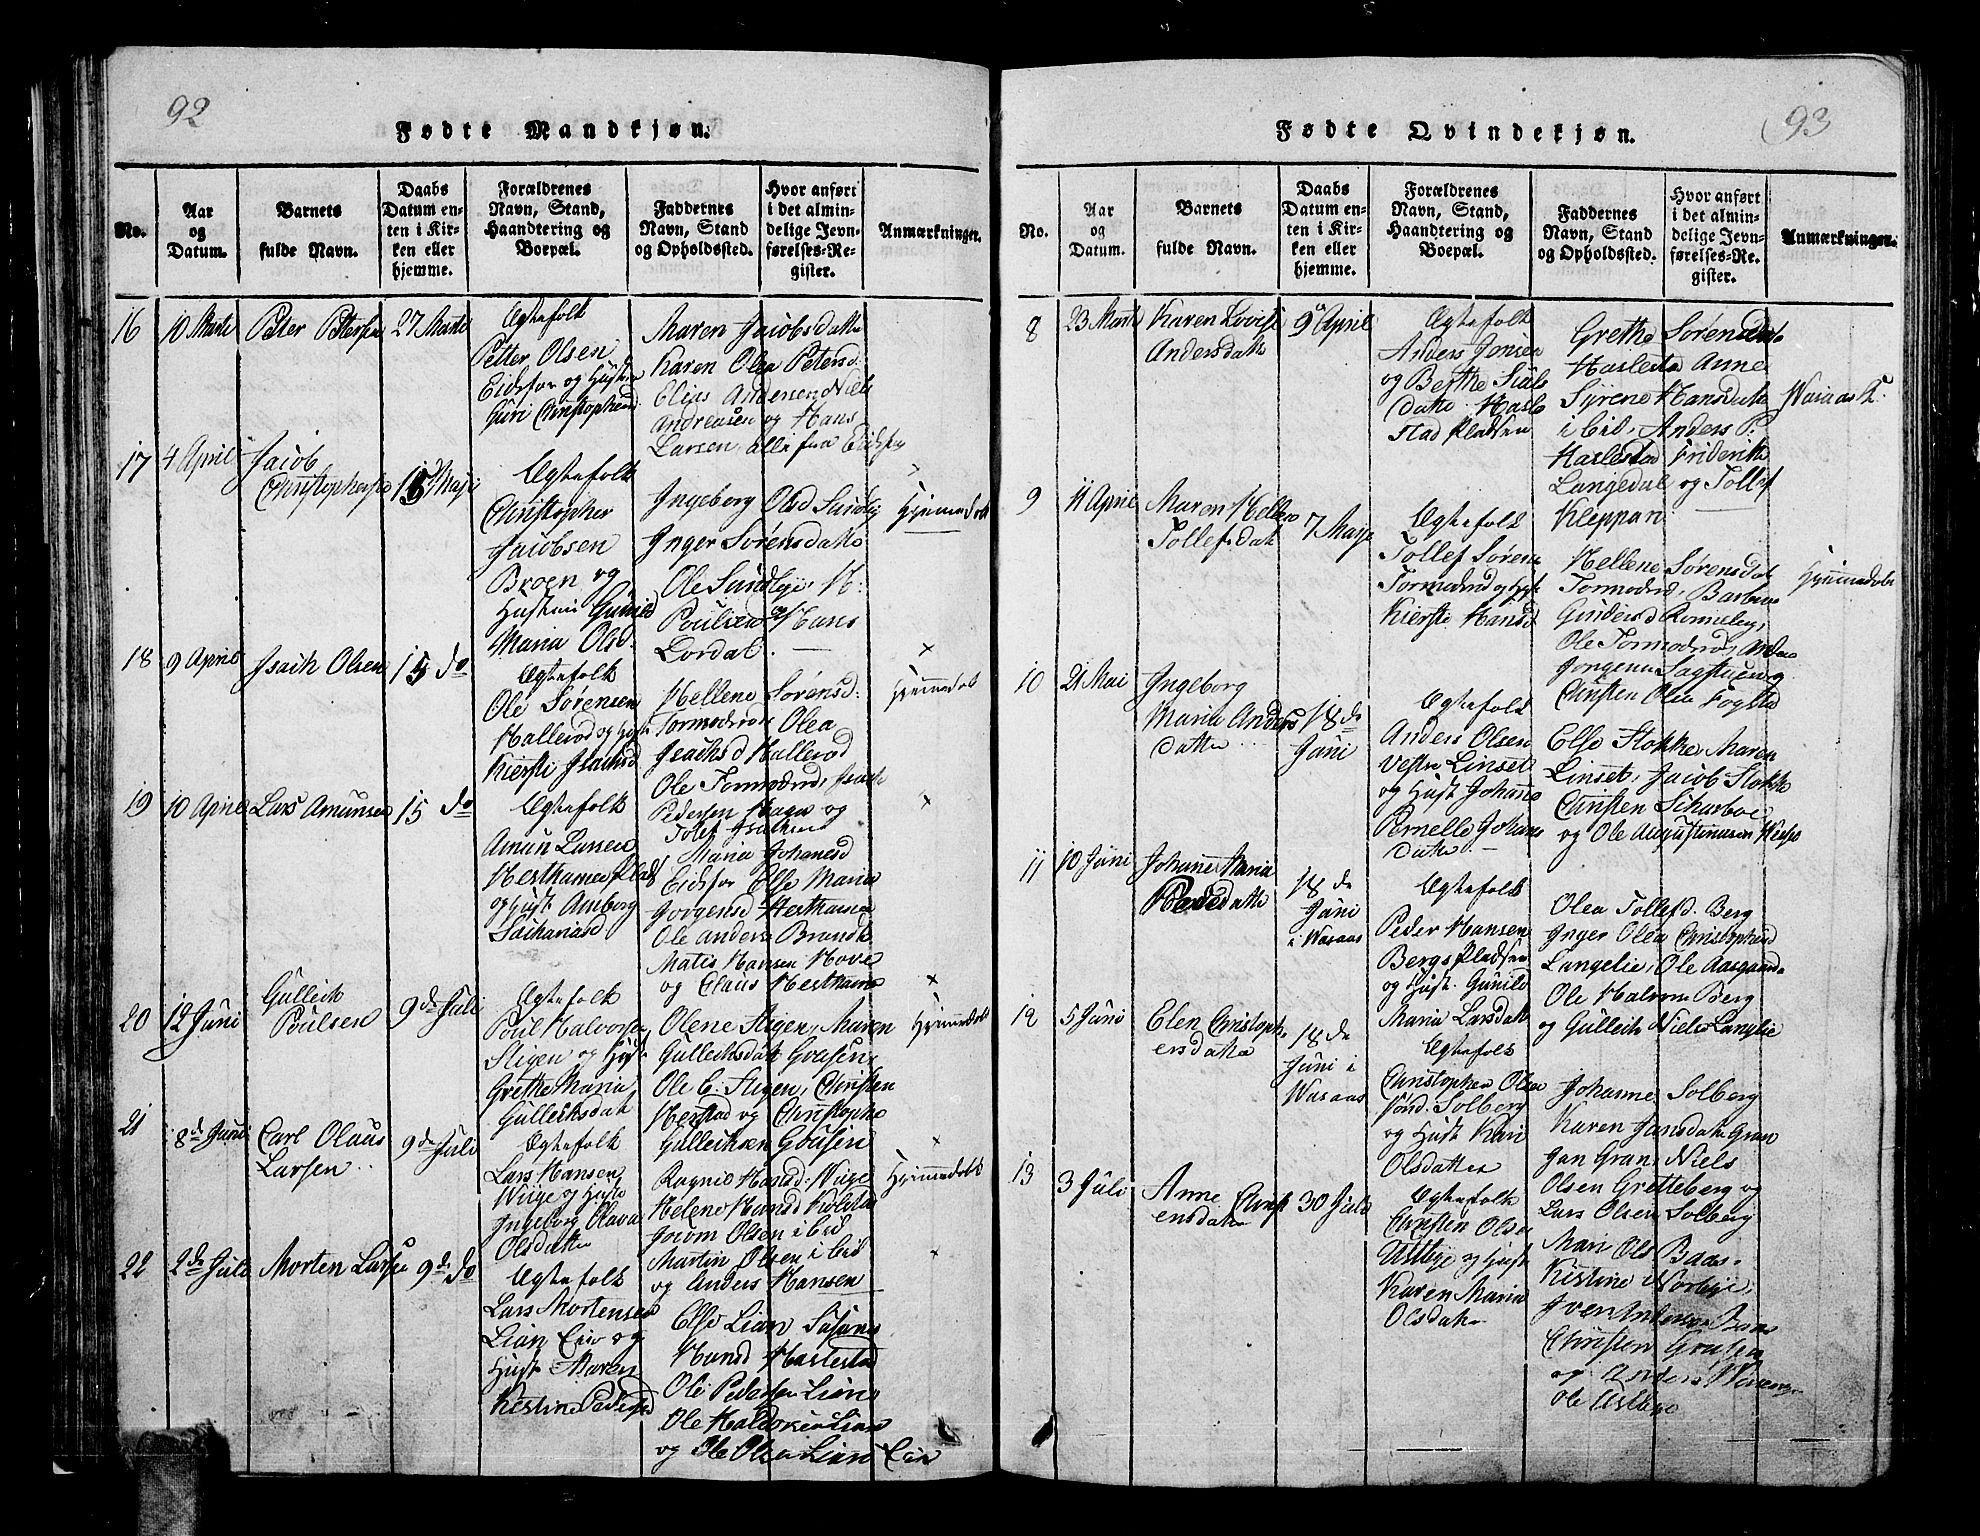 92
Fødte Mandkjøn.
No.
Aar
og
Datum.
Barnets
fulde Navn.
Daabs
Datum en-
ten i Kir-
ken eller
hjemme.
Forældrenes
Navn, Stand,
Haandtering og
Boepæl.
Faddernes
Navn, Stand
og Opholdssted.
Hvor anført
i det almin-
delige Jevn-
førelses-Re-
gister.
Anmærkninger.
16
10 Marti
Peter Petersen
27 Marti
Egtefolk
Petter Olsen
Eidsfos og Hustru
Guri Christophersd
Maren Jacobsdatte
Karen Olea Petersd
Elias Andersen Niels
Andreasen og Hans
Larsen, alle fra Eidsfos
17
4 April
Jacob
Christophersen
15 Maji
Egtefolk
Christopher
Jacobsen
Broen og
Hustrui Gunild
Maria Olsd.
Ingeborg Olsd Sundby
Inger Sørensdatte
Ole Sundbye H.
Poulsen og Hans
Lordal.
Hjemmedøbt
18
9 April
Isach Olsen
15 do
Egtefolk
Ole Sørensen
Hallerød og Hust
Kiersti Isachsd
Hellene Sørensd.
Tormodsrød Olea
Isachsd Hallerød
Ole Tormodsrød, Isach
Pedersen Haga og
Tolef Isachsen
×
Hjemmedøbt
19
10 April
Lars Amunsen
15 do
Egtefolk
Amun Larsen
Hesthamer Plads
og Hust. Amborg
Zachariasd
Maria Johanesd
Eidsfos Else Maria
Jørgensd Hesthamer
Ole Anders Brandt
Matis Hansen Hove
og Claus Hesthamer
×
20
12 Juni
Gullich
Poulsen
9 de Juli
Egtefolk
Poul Halvorsen
Stigen og Hust
Grethe Maria
Gullichsdat
Olene Stigen, Maren
Gullichsdat Graasen,
Ole C. Stigen, Christen
Herstad og Christophe
Gullichsen Graasen
×
Hjemmedøbt
21
8 d Juni
Carl Olaus
Larsen
9 de Juli
Egtefolk
Lars Hansen
Wiige og Hust
Ingeborg Olava
Olsdatte
Ragnil Hansd. Wiige
Helene Hansd Kiølstad
Jocom Olsen ibid
Martin Olsen ibid
og Anders Hansen
×
Hjemmedøbt
22
2 de Juli
Morten Larsen
9 de do
Egtefolk
Lars Mortensen
Lian Eier og
Hust. Maren
Kistine Pedersd
Else Lian Susane
Hansd Haslestad
Ole Pedersen Lian
Ole Haldorsen Lian
og Ole Olsen Lian Eier
×
93
Fødte Qvindekjøn.
No.
Aar
og
Datum.
Barnets
fulde Navn.
Daabs
Datum en-
ten i Kir-
ken eller
hjemme.
Forældrenes
Navn, Stand,
Haandtering og
Boepæl.
Faddernes
Navn, Stand
og Opholdssted.
Hvor anført
i det almin-
delige Jevn-
førelses-Re-
gister.
Anmærkninger.
8
23 Marti
Karen Lovise
Andersdatte
9 April
Egtefolk
Anders Jonsen
og Berthe Niels
datte. Hasle
stad Pladsen
Grethe Sørensdatte
Haslestad Anne
Syrene Hansdatte
ibid, Anders P.
Haslestad Friderik
Langedal og Tollef
Kleppan
Wasaas K.
9
11 April
Maren Hellene
Tollefsdatt
7 Maji
Egtefolk
Tollef Sørensen
Tormodsrød og Hust
Kiersti Hansd
Hellene Sørensdat
Tormodsrød, Barbara
Gundersd Rønneberg,
Ole Tormodsrød, Anders
Jørgensen Sagstuen og
Christen Olsen Fogstad
Hjemmedøbt
10
21 Mai
Ingeborg
Maria Anders
datter
18 de
Juni
Egtefolk
Anders Olsen
Vestre Linset
og Hust Johanne
Pernelle Johans
datte
Else Stokke, Maren
Linset, Jacob Stokke
Christen Skarboe
og Ole Augustinusen
11
10 Juni
Johanne Maria
Pedersdatte
18 de
Juni
i Wasaas
Egtefolk
Peder Hansen
Bergs Pladsen
og Hust. Gunild
Maria Larsdatt
Olea Tollefsd. Berg
Inger Olea Christophersd
Langelie, Ole Aasgaarden
Ole Halvorsen Berg
og Gullich Niels Langlie
12
5 Juni
Elen Christoph
ersdatte
18 de
Juni i
Wasaas
Egtefolk
Christopher Olsen
Solberg
og Hust Kari
Olsdatter
Johanne Solberg
Karen Jansdatt Gran
Jan Gran, Niels
Olsen Gretteberg og
Lars Olsen Solberg
13
3 Juli
Anne Christ
ensdatte
30 Juli
Egtefolk
Christen Olsen
Ustbye og Hust
Karen Maria
Olsdatte
Mari Ols Baas
Kistine Norbye,
Iver Andersen Baas
Christen Graasen
og Anders
Ole Ustbye